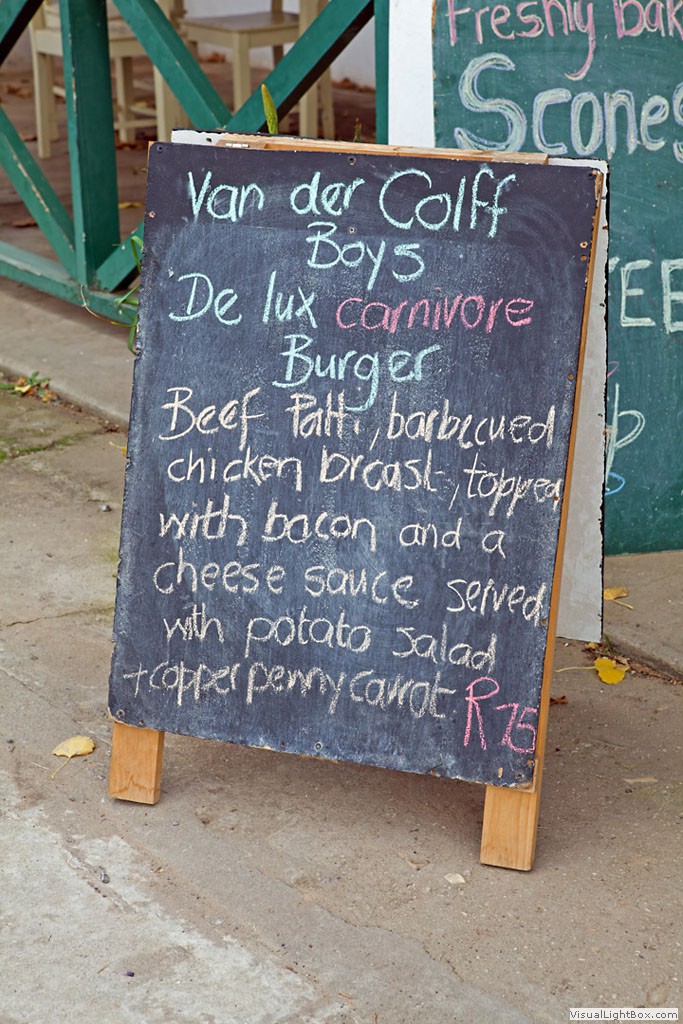 Van der Colff
Boys
De lux carnivore
Burger
Beef Patti, barbecued
chicken breast, topped
with bacon and a
cheese sauce served
with potato salad
+ copper penny carrot R75
Freshly bak
Scones
EE
VisualLightBox.com